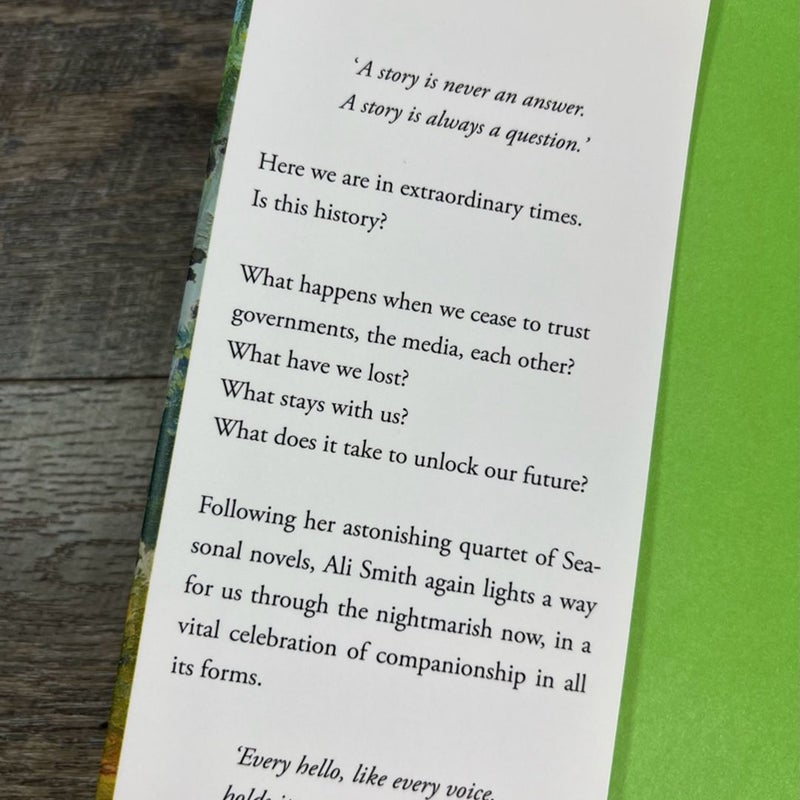 ‘A story is never an answer.
A story is always a question.’
Here we are in extraordinary times.
Is this history?
What happens when we cease to trust
governments, the media, each other?
What have we lost?
What stays with us?
What does it take to unlock our future?
Following her astonishing quartet of Sea-
sonal novels, Ali Smith again lights a way
for us through the nightmarish now, in a
vital celebration of companionship in all
its forms.
‘Every hello, like every voice,
holds